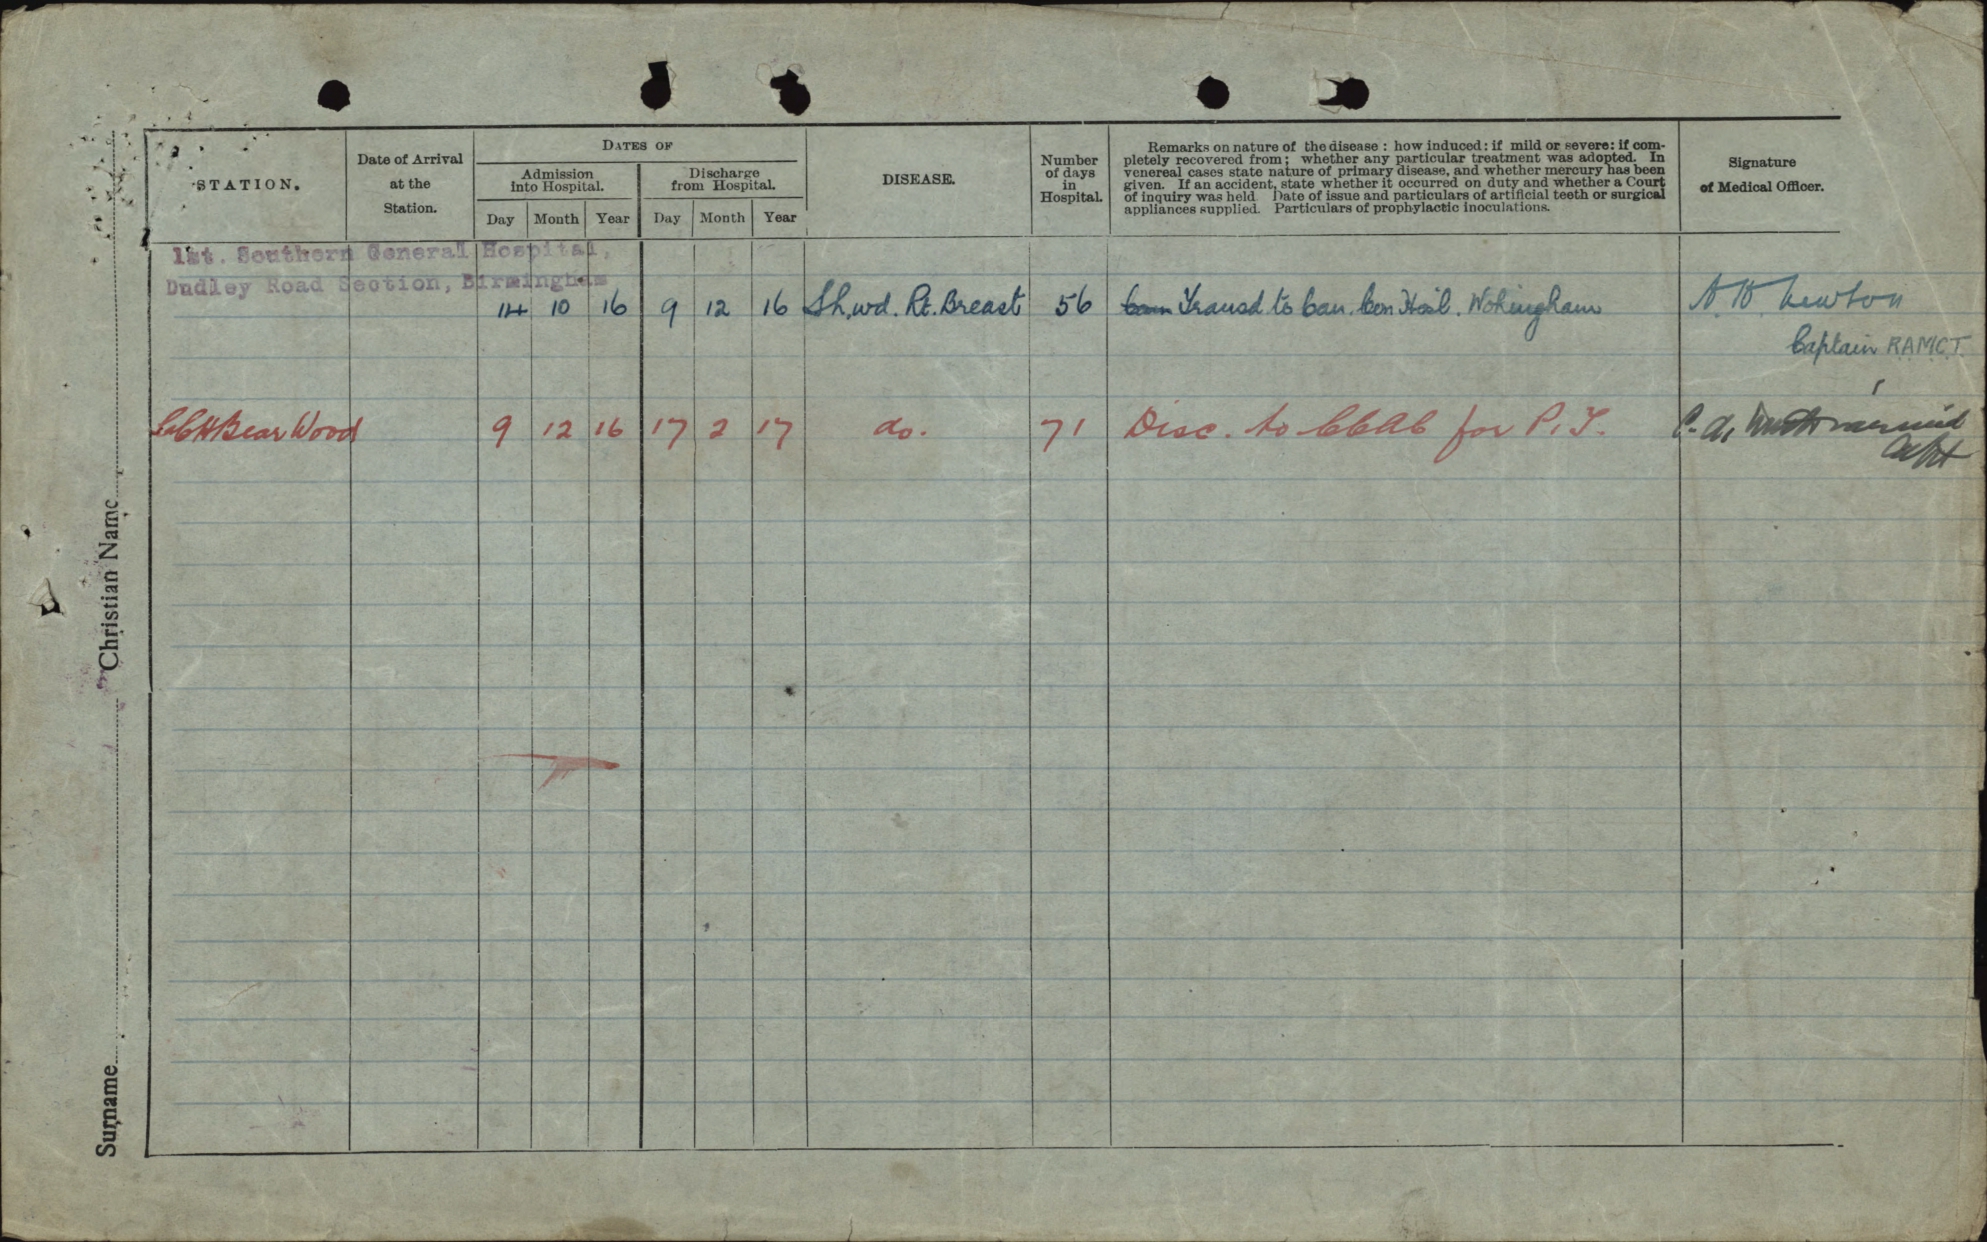 STATION.
Date of Arrival
at the
Station.
DATES OF
Admission
into Hospital.
Discharge
from Hospital.
Day Month Year Day Month Year
DISEASE.
Number
of days
in
Hospital.
Remarks on nature of the disease : how induced: if mild or severe: if com-
pletely recovered from; whether any particular treatment was adopted. In
venereal cases state nature of primary disease, and whether mercury has been
given. If an accident, state whether it occurred on duty and whether a Court
of inquiry was held Date of issue and particulars of artificial teeth or surgical
appliances supplied. Particulars of prophylactic inoculations.
Signature
of Medical Officer.
1st. Southern General Hospital,
Dudley Road Section, Birmingham
14 10 16 9 12 16 Sh. wd. Rt. Breast 56 Transd to Can. Con Hosl. Wokingham
Captain RAMCT
CCH Bear Wood 9 12 16 17 2 17 do. 71 Disc. to CCAC for P.T.
C. A.
Capt
Surname Christian Name